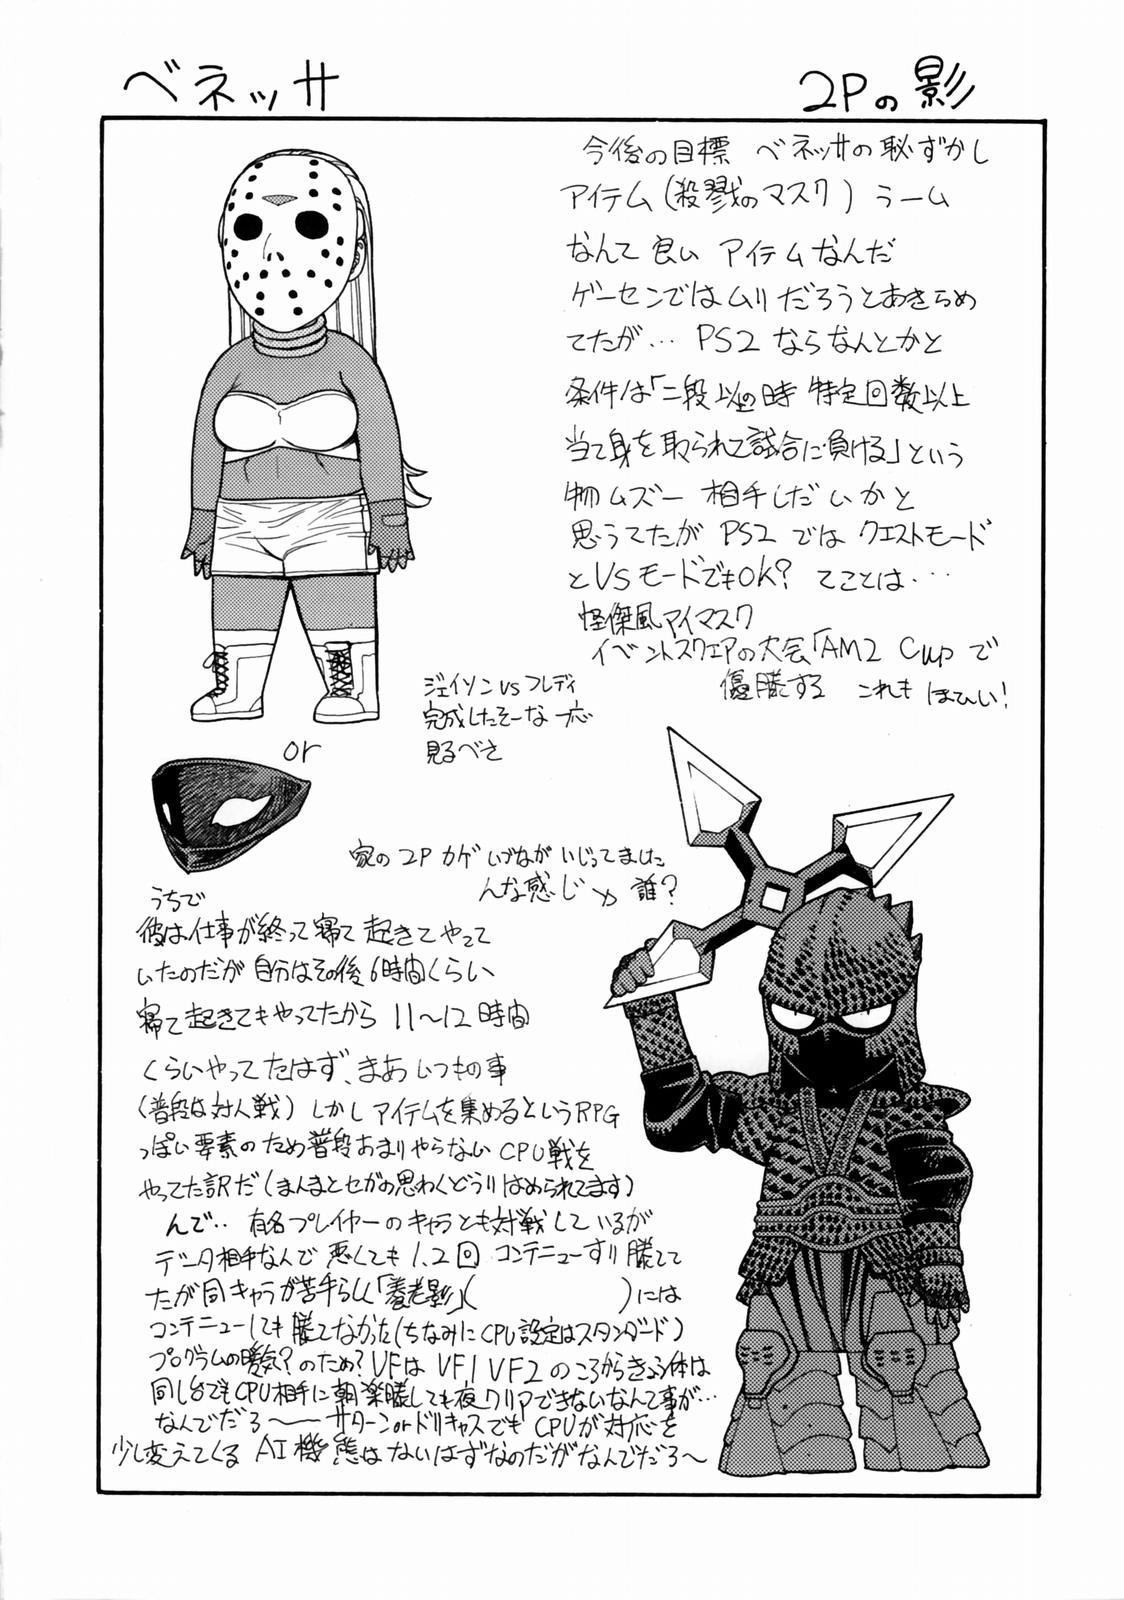 ベネッサ
2Pの影
今後の目標 ベネッサの恥ずかし
アイテム(殺戮のマスク) うーム
なんて良い アイテムなんだ
ゲーセンではムリだろうとあきらめ
てたが… PS2 ならなんとかと
条件は「二段以上の時 特定回数以上
当て身を取られて試合に負ける」という
物 ムズー 相手しだいかと
思うてたが PS2 では クエストモード
とVSモードでもOK? てことは…
怪傑風アイマスク
イベントスクエアの大会「AM2 Cup で
優勝する これも ほひい!
ジェイソン vs フレディ
完成したそーな 一応
見るべさ
or
家の 2P カゲ いづなが いじってました
んな感じ 誰?
うちで
彼は仕事が終って寝て 起きてやって
いたのだが 自分はその後6時間くらい
寝て起きてもやってたから 11～12時間
くらいやってたはず、まあいつもの事
(普段は対人戦) しかし アイテムを集めるというRPG
っぽい要素のため普段あまりやらない CPU戦を
やってた訳だ(まんまとセガの思わくどうりはめられてます)
んで‥ 有名プレイヤーのキャラとも対戦しているが
データ相手なんで 悪くても 1.2回 コンテニューすりゃ勝てて
たが同キャラが苦手らしく「養老影」( )には
コンテニューしても勝てなかった(ちなみにCPU設定はスタンダード)
プログラムの曖気?のため? VFは VF1 VF2 のころからきょう体は
同じ台でもCPU相手に朝楽勝しても夜クリアできないなんて事が…
なんでだろ～ サターンorドリキャスでも CPUが対応を
少し変えてくる AI機態はないはずなのだがなんでだろ～